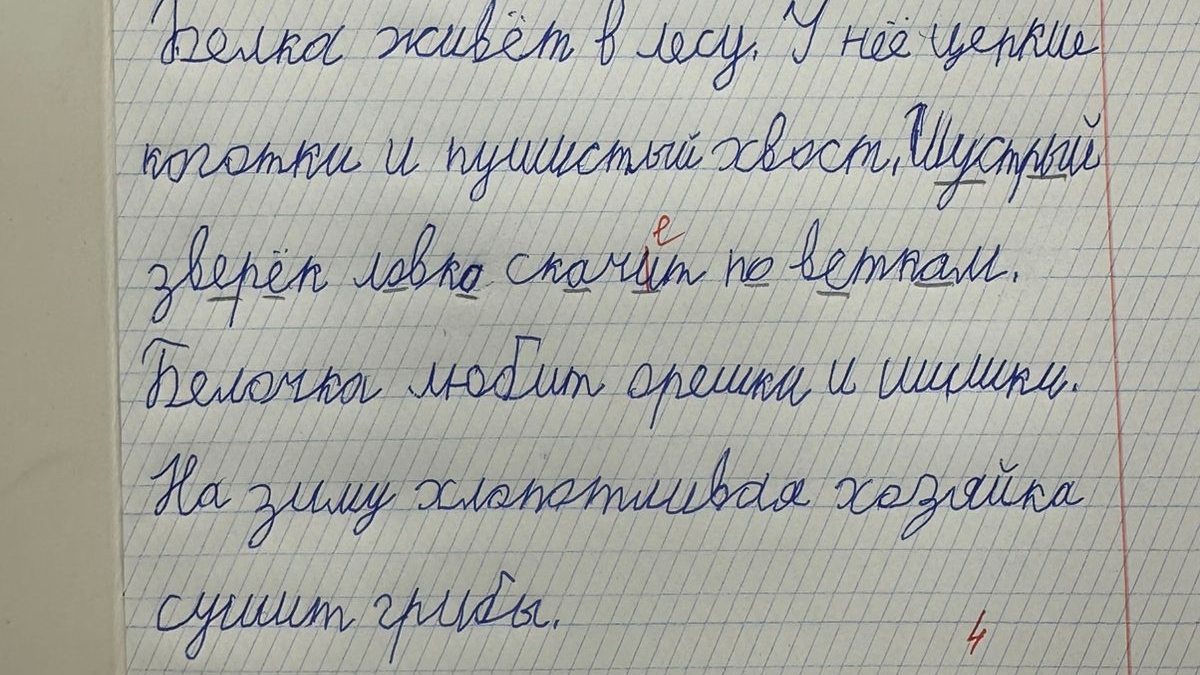 Белка живёт в лесу. У неё церкие
коготки и пушистый хвост. Шустрый
е
зверёк ловко скачит по веткам.
Белочка любит орешки и шишки.
На зиму хлопотливая хозяйка
сушит грибы.
4